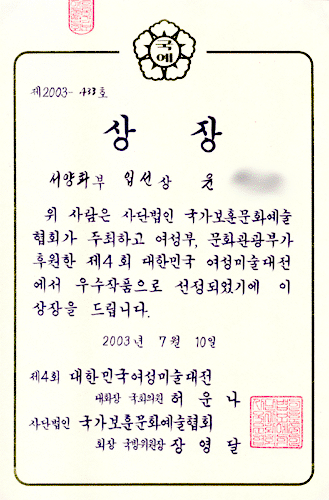 국
예
제2003-433호
상 장
서양화부 입선상 윤
위 사람은 사단법인 국가보훈문화예술
협회가 주최하고 여성부, 문화관광부가
후원한 제4회 대한민국 여성미술대전
에서 우수작품으로 선정되었기에 이
상장을 드립니다.
2003년 7월 10일
제4회 대한민국여성미술대전
대회장 국회의원 허운나
사단법인 국가보훈문화예술협회
회장 국방위원장 장영달